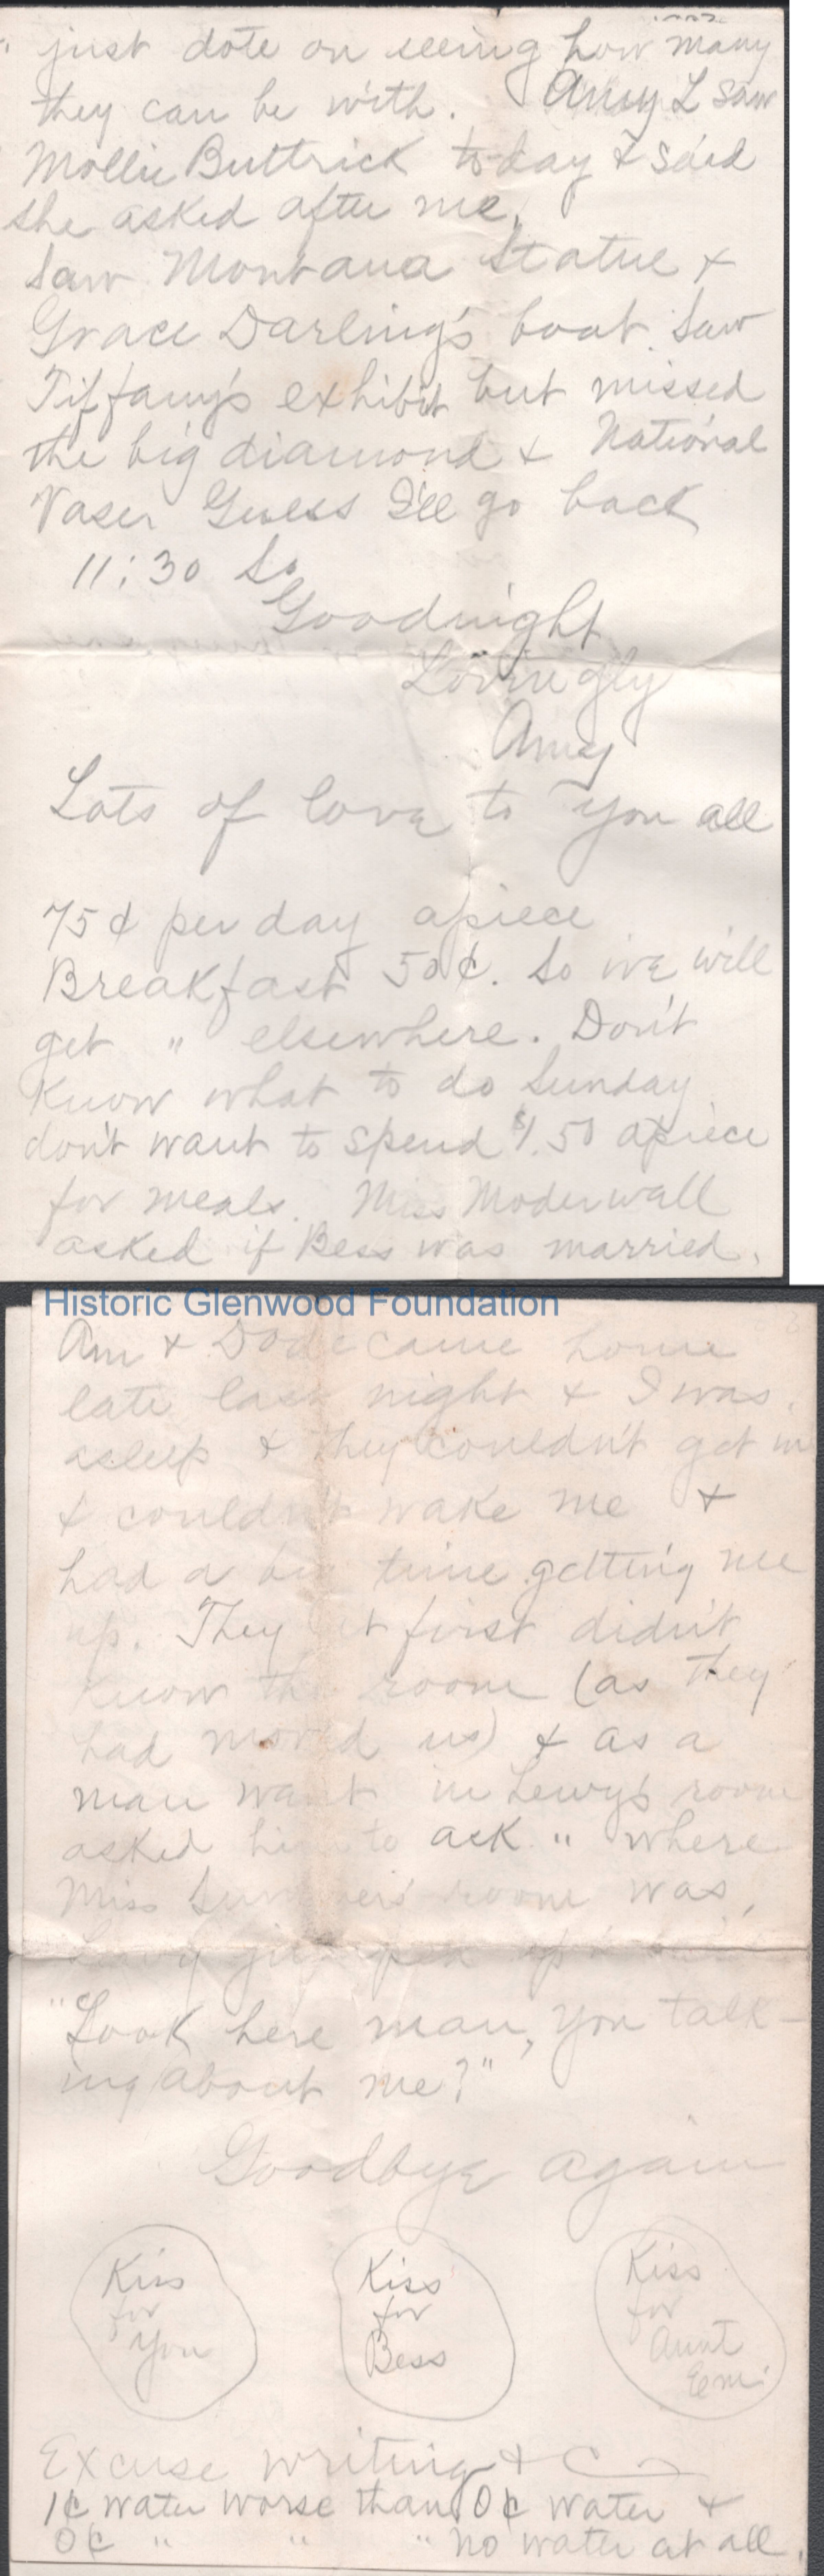 just dote on seeing how many
they can be with. Amy L saw
Mollie Buttrick to-day & said
she asked after me.
Saw Montana Statue &
Grace Darling's boat. Saw
Tiffany's exhibit but missed
the big diamond & National
Vase. Guess I'll go back
11:30 So
Goodnight
Lovingly
Amy
Lots of love to you all
75¢ per day apiece
Breakfast 50¢. So we will
get " elsewhere. Don't
know what to do Sunday
don't want to spend $1.50 apiece
for meals. Miss Moderwall
asked if Bess was married.
Historic Glenwood Foundation
Am & Dode came home
late last night & I was
asleep & they couldn't get in
& couldn't wake me &
had a big time getting me
up. They at first didn't
know the room (as they
had moved us) & as a
man went in Lewy's room
asked him to ask " where
Miss room was,
jumped up &
"Look here man, you talk-
ing about me?"
Goodbye again
Kiss
for
You
Kiss
for
Bess
Kiss
for
Aunt
Em
Excuse writing &
1¢ water worse than 0¢ water &
0¢ " " " no water at all.